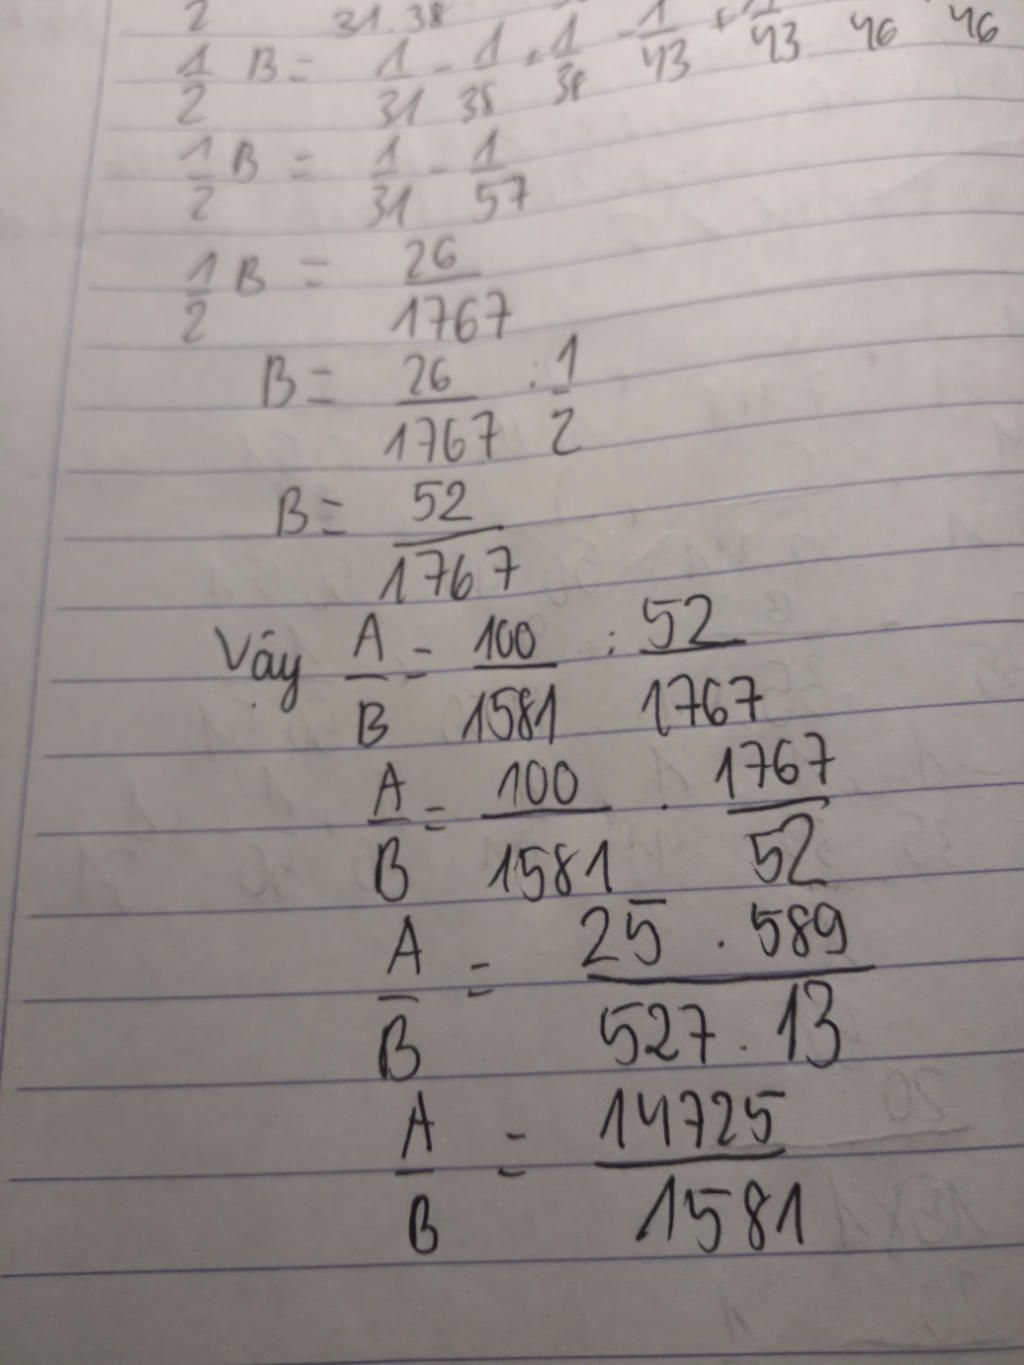 2 31.38
1/2 B = 1/31 - 1/38 + 1/38 - 1/43 + 1/43 46 46
1/2 B = 1/31 - 1/57
1/2 B = 26/1767
B = 26/1767 : 1/2
B = 52/1767
Vậy A/B = 100/1581 : 52/1767
A/B = 100/1581 . 1767/52
A/B = 25 . 589/527 . 13
A/B = 14725/1581